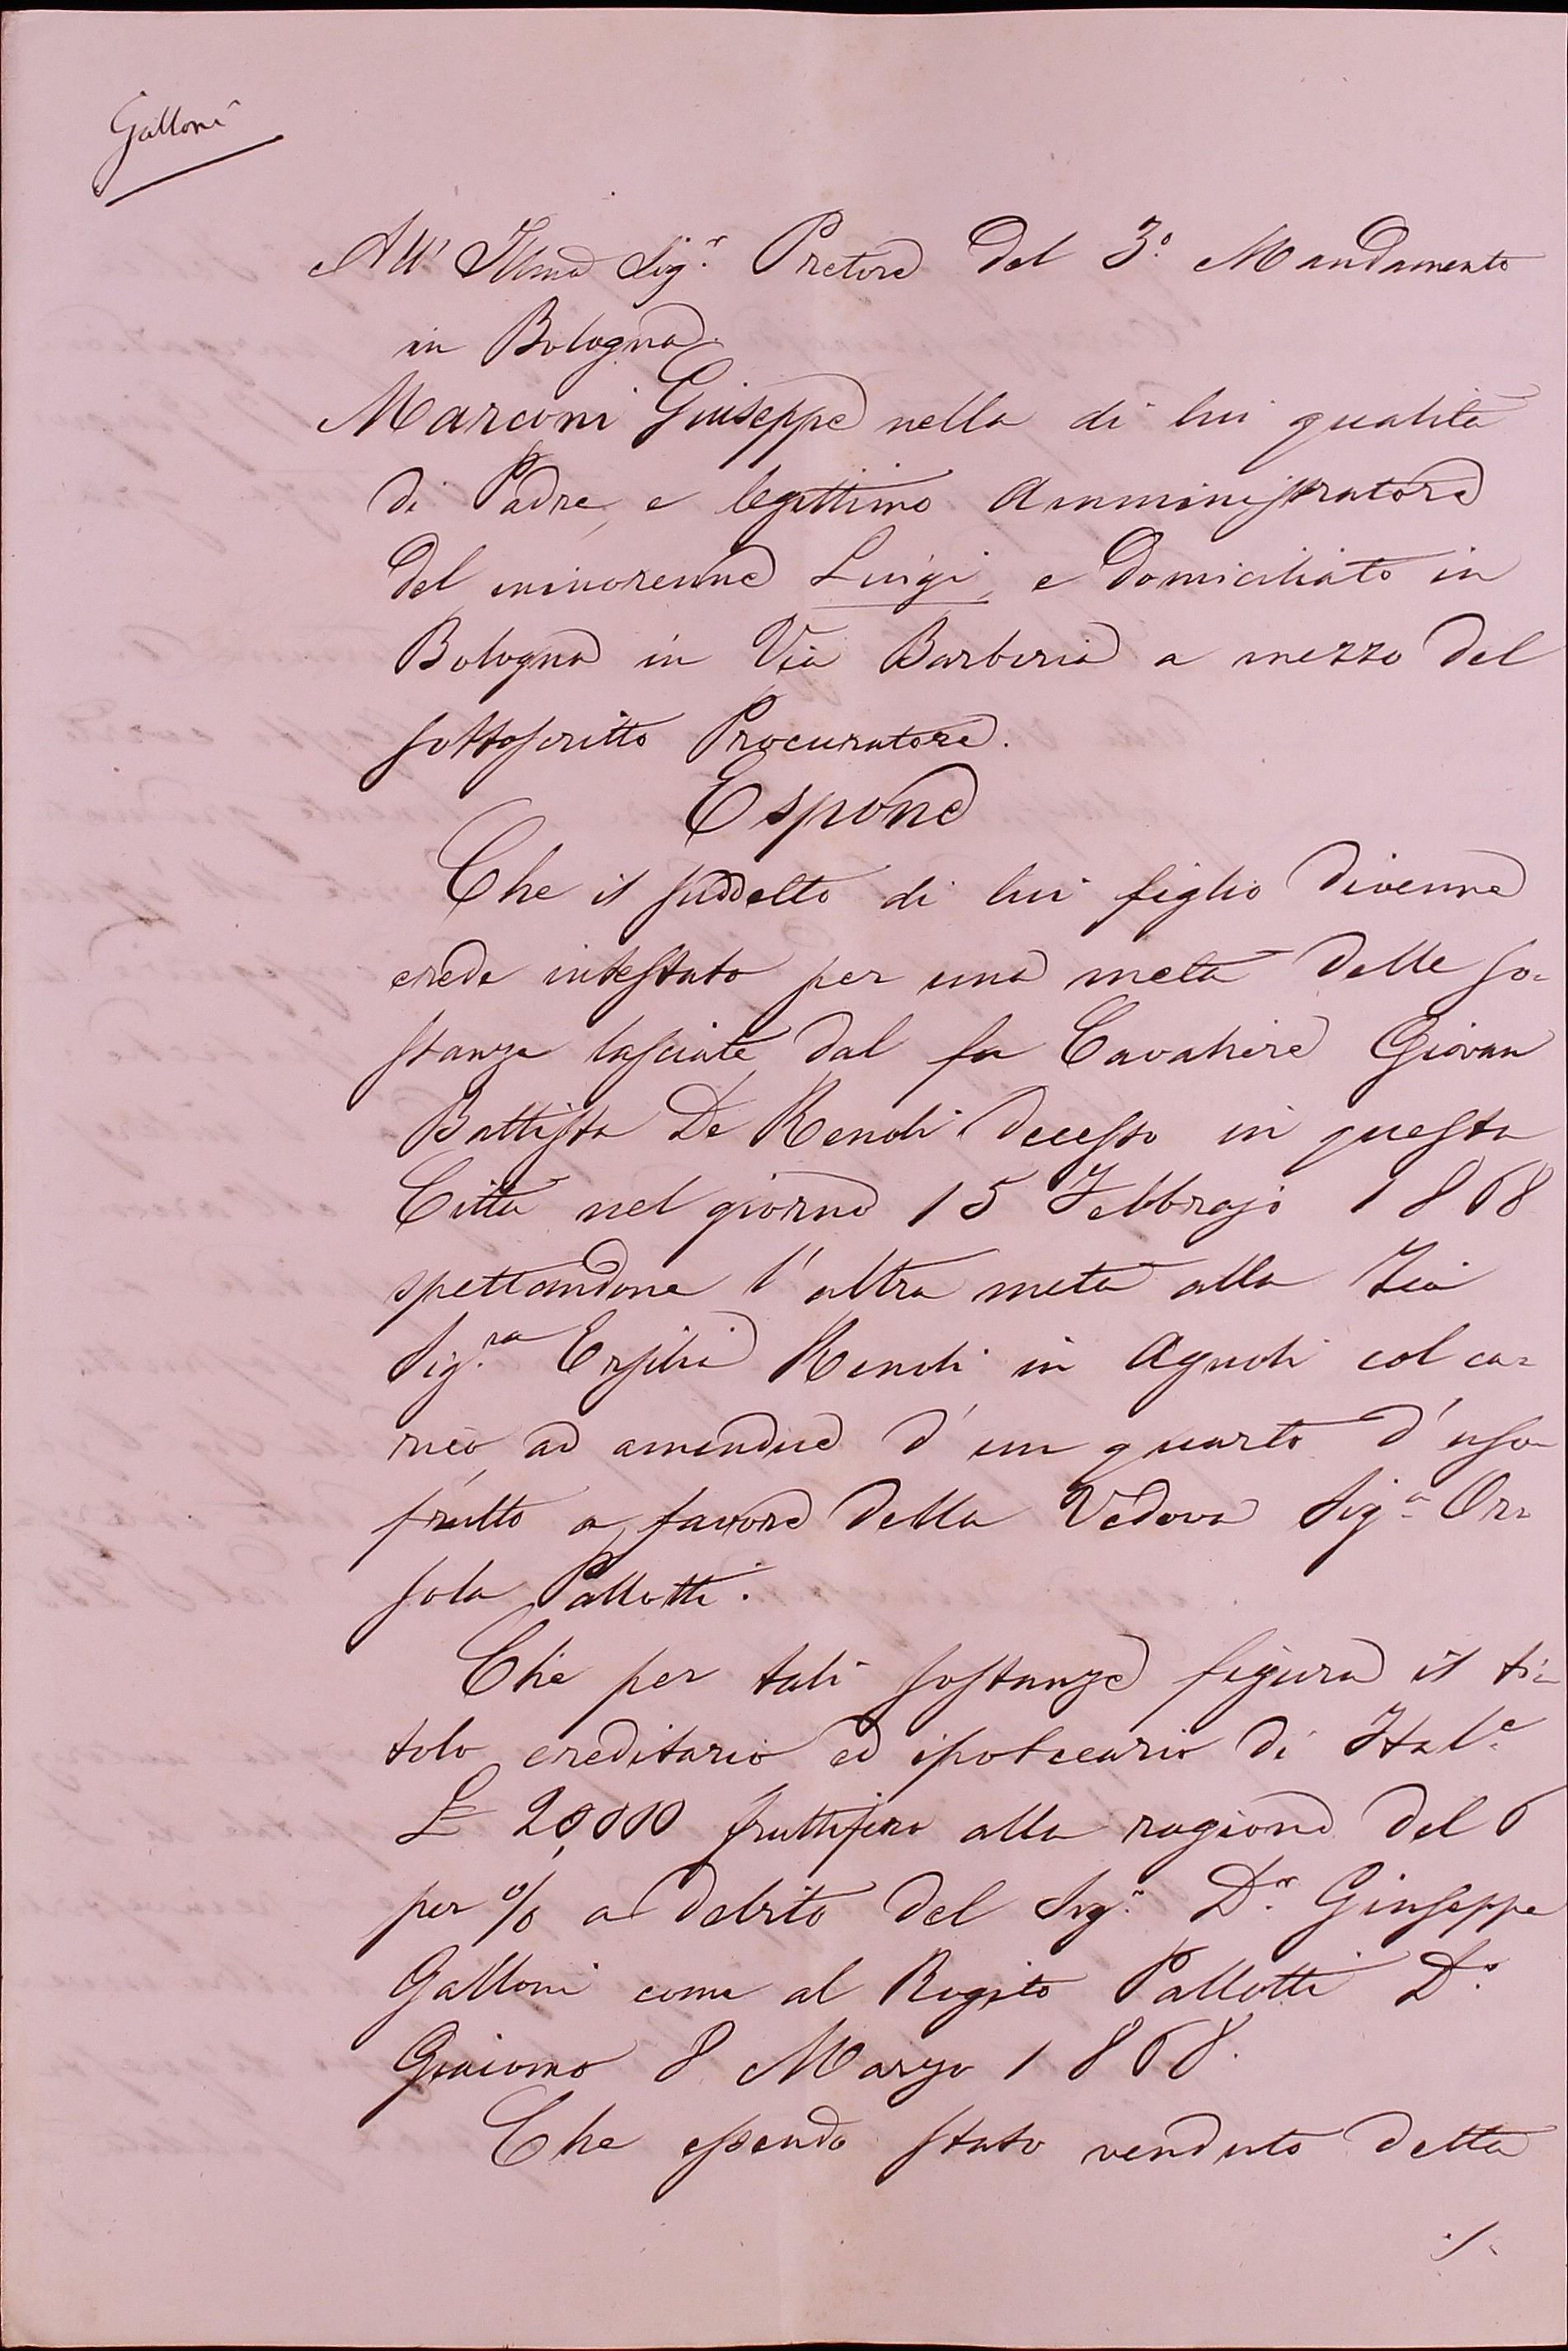 Galloni
All' Illmo Sig.r Pretore del 3.o Mandamento
in Bologna.
Marconi Giuseppe nella di lui qualità
di Padre, e legittimo Amministratore
del minorenne Luigi, e domiciliato in
Bologna in Via Barberia a mezzo del
sottoscritto Procuratore.
Espone
Che il suddetto di lui figlio divenne
erede intestato per una metà delle so-
stanze lasciate dal fu Cavaliere Giovan
Battista De Renoli decesso in questa
Città nel giorno 15 Febbrajo 1868
spettandone l'altra metà alla Zia
Sig.ra Ersilia Renoli in Agnoli col ca-
rico ad amendue d'un quarto d'uso-
frutto a favore della Vedova Sig.a Or-
sola Pallotti.
Che per tali sostanze figura il ti-
tolo creditario ed ipotecario di Ital.e
£ 20,000 fruttifero alla ragione del 6
per % a debito del Sig.r D.r Giuseppe
Galloni come al Rogito Pallotti D.r
Giacomo 8 Marzo 1868.
Che essendo stato venduto detto
./.